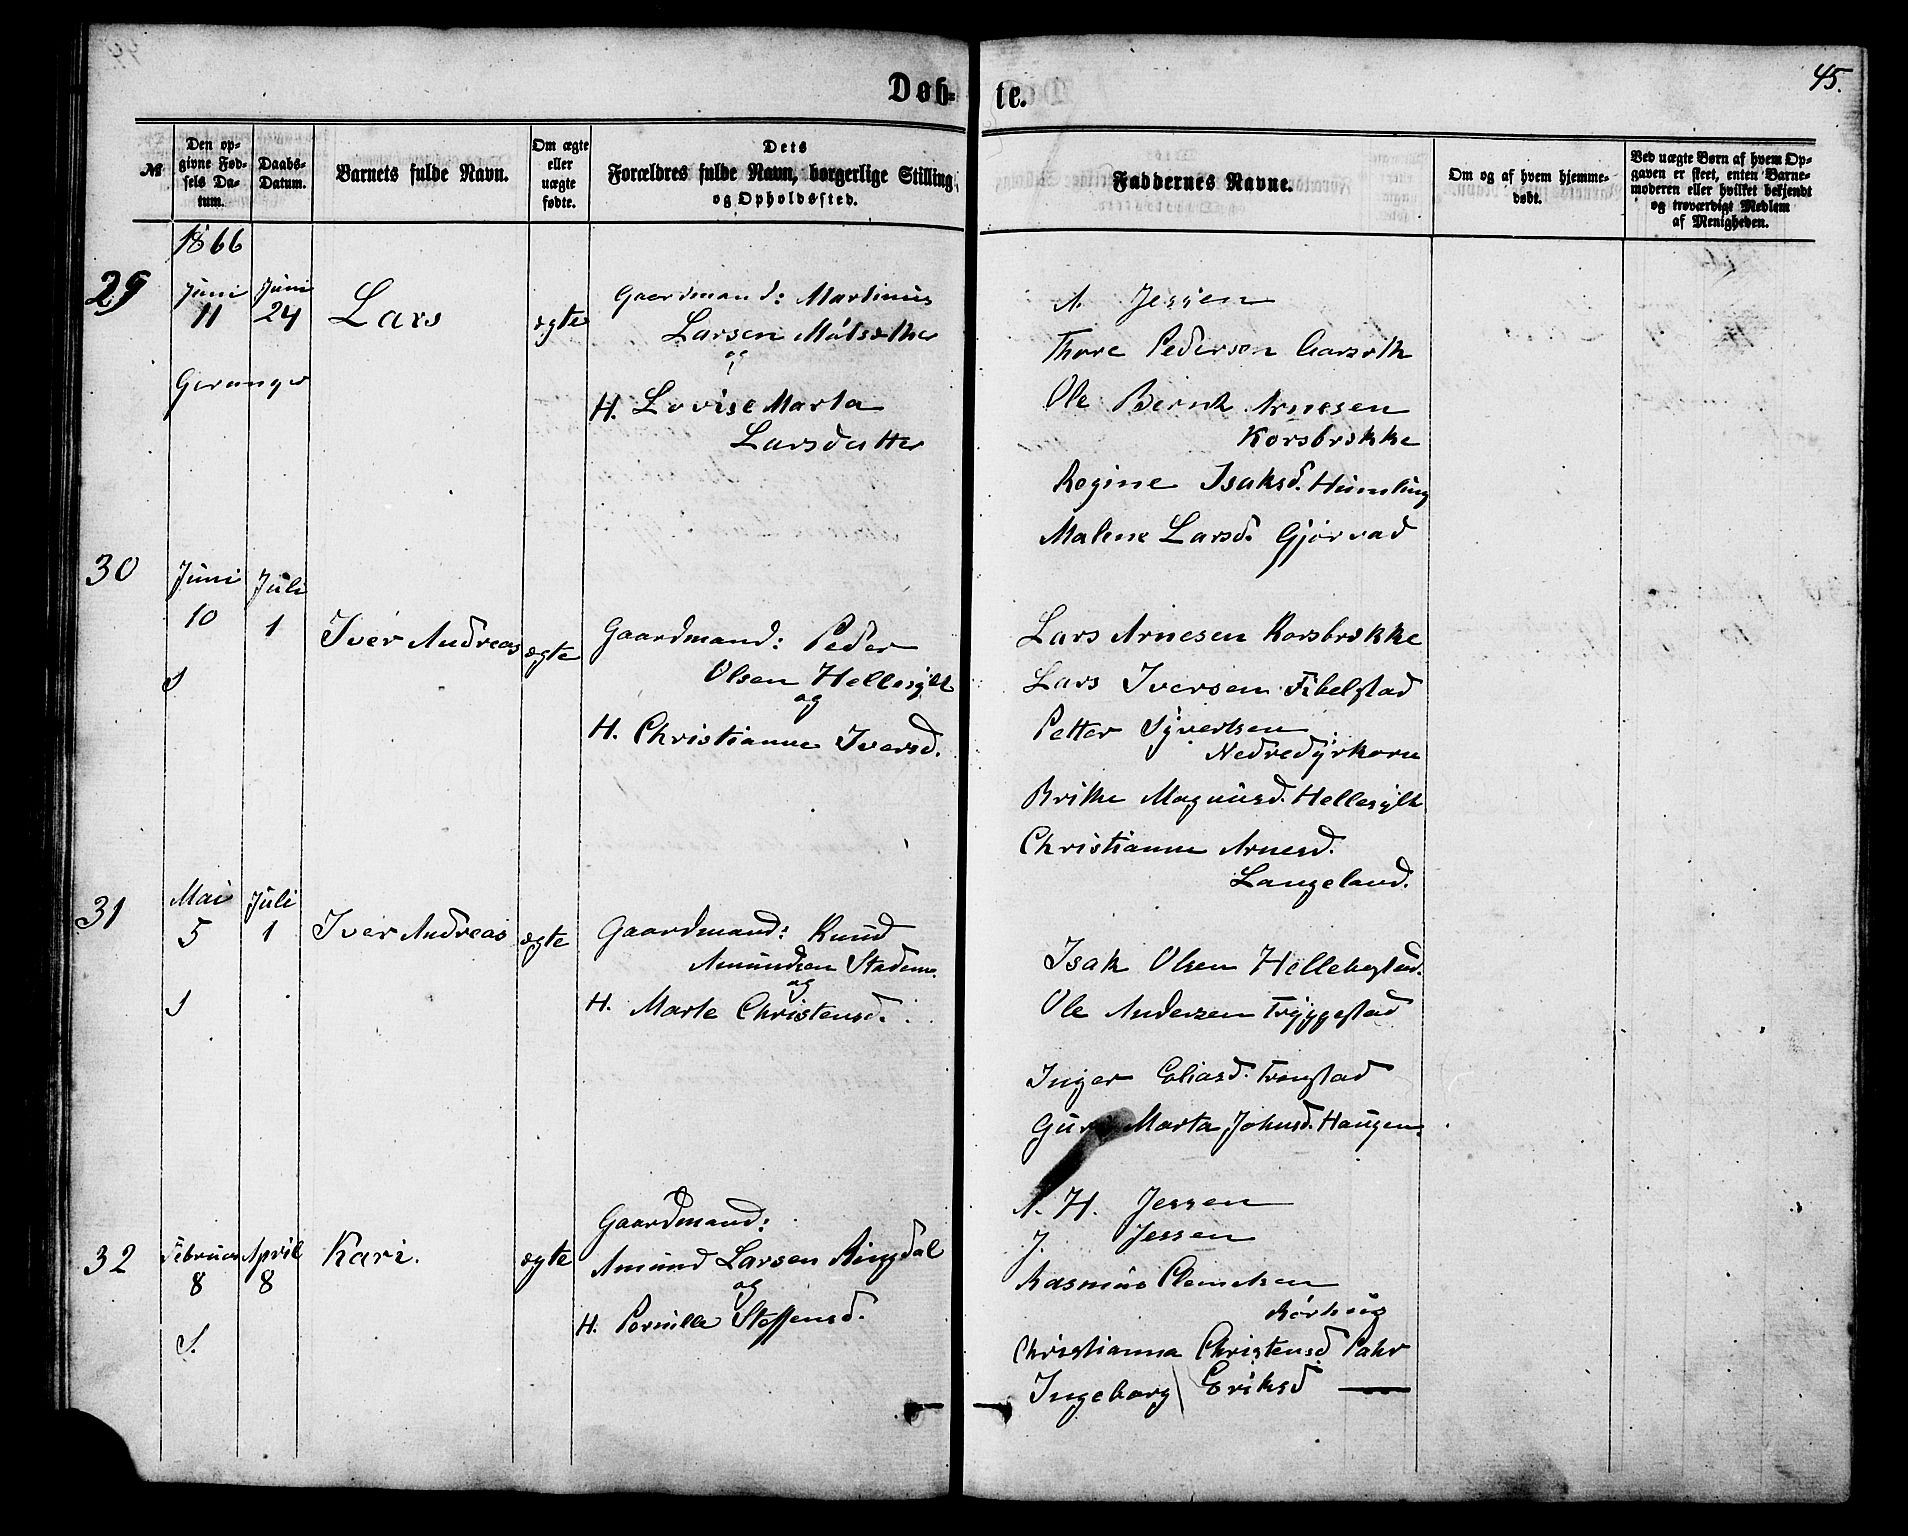 45.
Døb-
te.
№
Den op-
givne Fød-
sels Da-
tum.
Daabs-
Datum.
Barnets fulde Navn.
Om ægte
eller
uægte
fødte.
Dets
Forældres fulde Navn, borgerlige Stilling
og Opholdssted.
Faddernes Navne.
Om og af hvem hjemme-
døbt.
Ved uægte Børn af hvem Op-
gaven er skeet, enten Barne-
moderen eller hvilket bekjendt
og troværdigt Medlem
af Menigheden.
1866
29
Juni
11
Juni
24
Geranger
Lars
ægte
Gaardmand: Martinus
Larsen Mólsæther
og
H. Lovise Marta
Larsdatter
A. Jessen
Thore Pedersen
Ole Bernt Arnesen
Korsbrekke
Regine Isaksd. Humling
Malene Larsd. Gjørvad
30
Juni
10
Juli
1
S
Iver Andreas
ægte
Gaardmand: Peder
Olsen Hellesylt
og
H. Christianne Iversd.
Lars Arnesen Korsbrekke
Lars Iversen Fibelstad
Petter Syvertsen
Nedredyrkorn
Brithe Magnusd. Hellesylt
Christianne Arnesd.
Langeland.
31
Mai
5
Juli
1
S
Iver Andreas
ægte
Gaardmand: Knud
Amundsen Stadem
og
H. Marte Christensd.
Isak Olsen Hellebostad.
Ole Andersen Tryggestad
Inger Eliasd. Tronstad
Guri Marta Johnsd. Haugen.
32
Februar
8
April
8
S.
Kari.
ægte
Gaardmand:
Amund Larsen Ringdal
og
H. Pernille Steffensd.
A. H. Jessen
J. Jessen
Rasmus Clemetsen
Rørhuus
Christianna Christensd. Pahr
Ingeborg Eriksd —